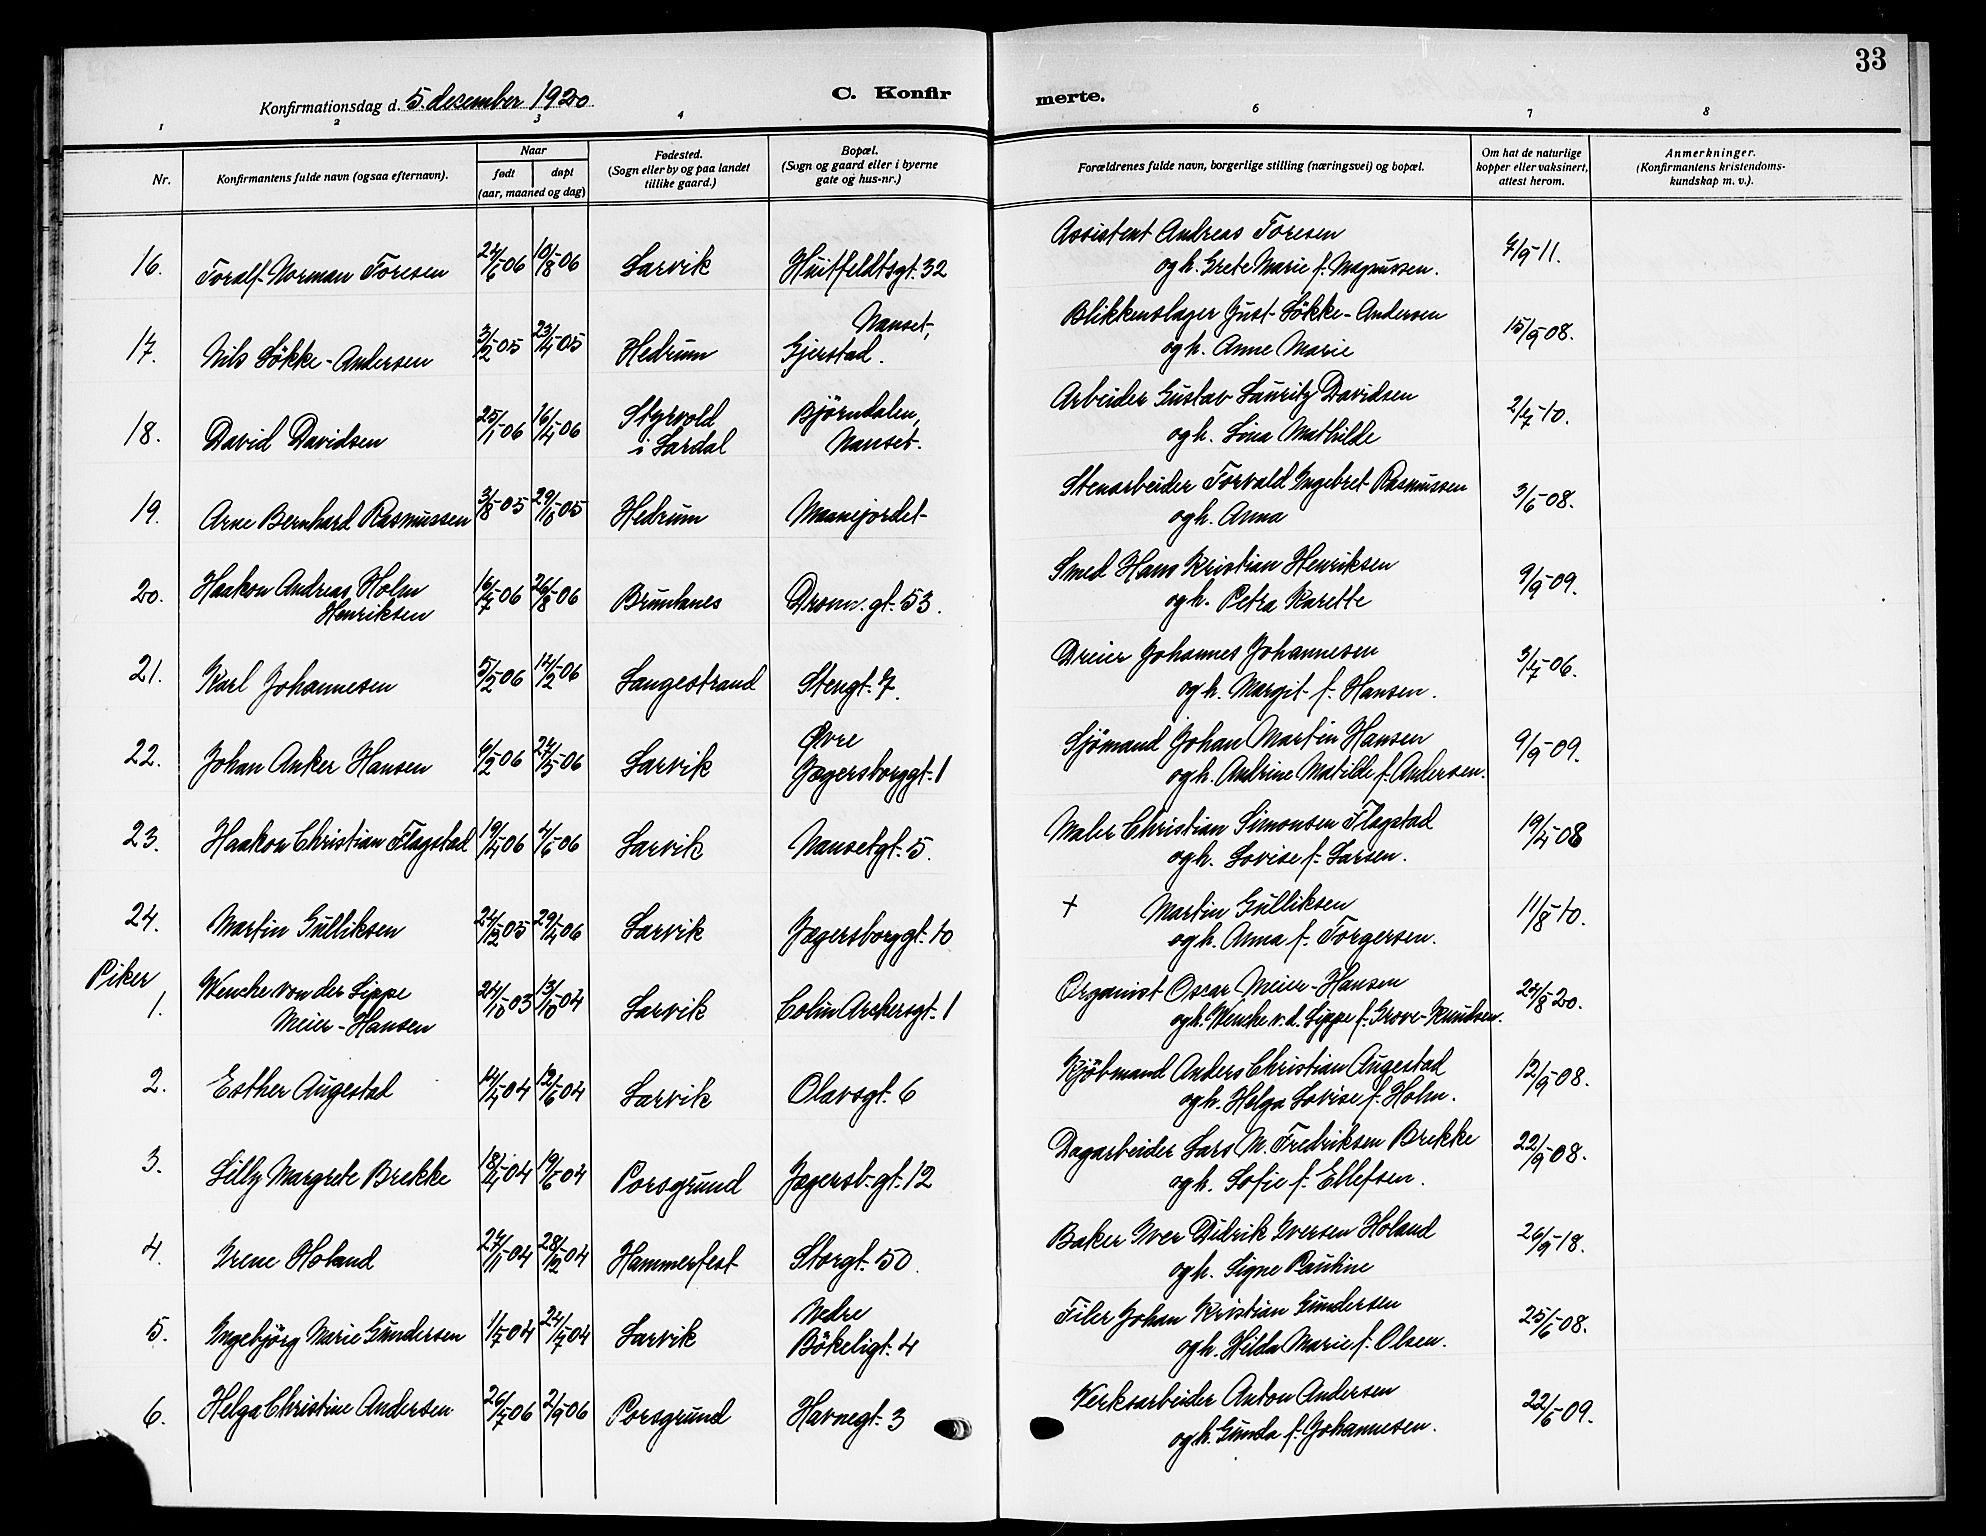 33
Konfirmationsdag d. 5. december 1920.
C. Konfir
merte.
1 2 3 4 6 7 8
Nr.
Konfirmantens fulde navn (ogsaa efternavn).
Naar
født døpt
(aar, maaned og dag)
Fødested.
(Sogn eller by og paa landet
tillike gaard.)
Bopæl.
(Sogn og gaard eller i byerne
gate og hus-nr.)
Forældrenes fulde navn, borgerlige stilling (næringsvei) og bopæl.
Om hat de naturlige
kopper eller vaksinert,
attest herom.
Anmerkninger.
(Konfirmantens kristendoms-
kundskap m. v.).
Assistent Andreas Toresen
16. Toralf Norman Toresen 24/6-06 10/8-06 Larvik Huitfeldtsgt. 32 og h. Grete Marie f. Magnussen. 7/9-11.
Nanset, Blikkenslager Just Løkke-Andersen
17. Nils Løkke-Andersen 3/2-05 23/4-05 Hedrum Gjerstad. og h. Anne Marie 15/9-08.
Styrvold Bjørndalen, Arbeider Gustav Lauritz Davidsen
18. David Davidsen 25/1-06 16/4-06 i Lardal Nanset. og h. Lina Mathilde 2/7-10.
Stenarbeider Torvald Ingebret Rasmussen
19. Arne Bernhard Rasmussen 3/8-05 29/10-05 Hedrum Maanejordet og h. Anna 3/6-08.
Haakon Andreas Holm Smed Hans Kristian Henriksen
20. Henriksen 16/7-06 26/8-06 Brunlanes Dronn. gt. 53. og h. Petra Karette 9/9-09.
Dreier Johannes Johannesen
21. Karl Johannesen 5/2-06 14/2-06 Langestrand Stengt. 7. og h. Margit f. Hansen. 3/7-06.
Øvre Sjømand Johan Martin Hansen
22. Johan Anker Hansen 6/2-06 27/5-06 Larvik Jægersborggt. 1 og h. Andrine Matilde f. Andersen. 9/9-09.
Maler Christian Simonsen Flagstad
23. Haakon Christian Flagstad 19/4-06 4/6-06 Larvik Nansetgt. 5. og h. Lovise f. Larsen. 19/4-08
+ Martin Gulliksen
24. Martin Gulliksen 24/12-05 29/4-06 Larvik Jægersborggt. 10 og h. Anna f. Torgersen. 11/8-10.
Piker
Wenche von der Lippe Organist Oscar Meier-Hansen
1. Meier-Hansen 24/10-03 13/10-04 Larvik Colin Archersgt. 1 og h. Wenche v. d. Lippe f. Grove-Knudsen. 24/8-20.
Kjøbmand Anders Christian Augestad
2. Esther Augestad 14/4-04 12/6-04 Larvik Olavsgt. 6 og h. Helga Lovise f. Holm. 12/9-08.
Dagarbeider Lars M. Fredriksen Brekke
3. Lilly Margrete Brekke 18/4-04 19/6-04 Porsgrund Jægersb. gt. 12 og h. Sofie f. Ellefsen. 22/9-08.
Baker Iver Didrik Iversen Holand
4. Irene Holand 27/1-04 28/12-04 Hammerfest Storgt. 50 og h. Signe Pauline 26/9-18.
Nedre Filer Johan Kristian Gundersen
5. Ingebjørg Marie Gundersen 1/5-04 24/7-04 Larvik Bøkeligt. 4 og h. Hilda Marie f. Olsen. 25/6-08.
Verksarbeider Anton Andersen
6. Helga Christine Andersen 26/7-06 2/9-06 Porsgrund Havnegt. 3 og h. Gunda f. Johannesen. 22/6-09.